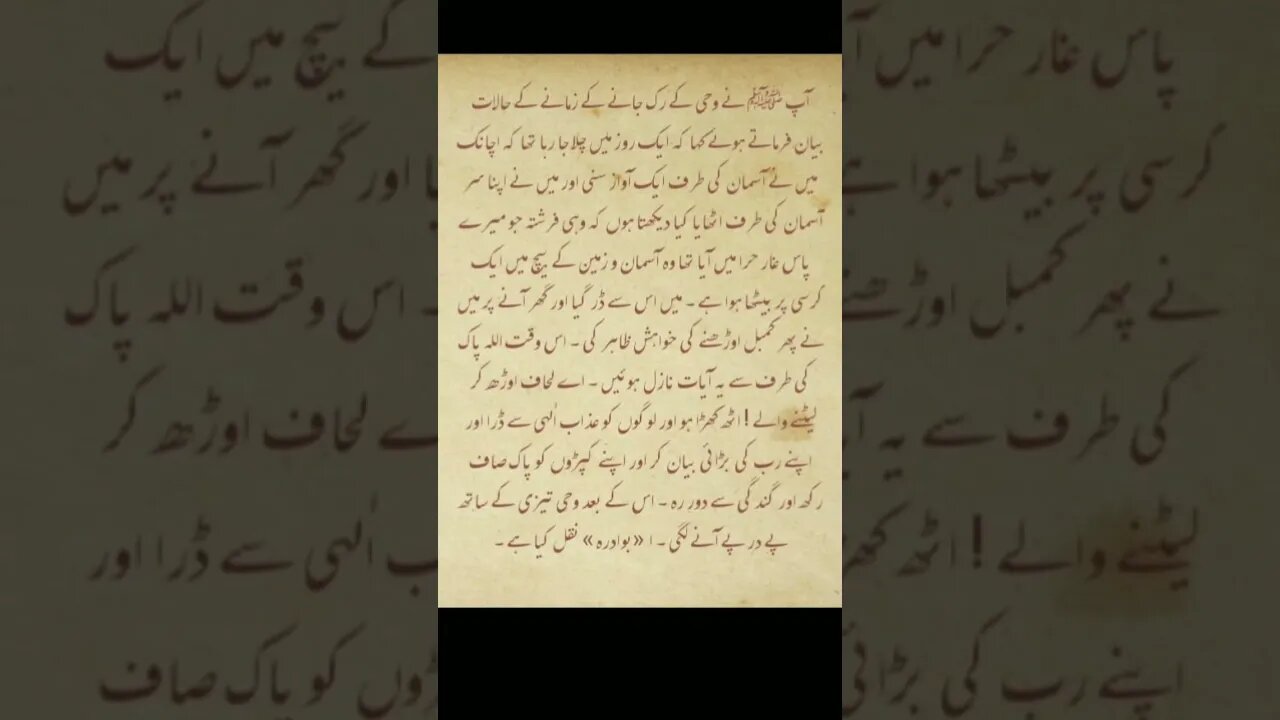 آپ ﷺ نے وحی کے رک جانے کے زمانے کے حالات
بیان فرماتے ہوئے کہا کہ ایک روز میں چلا جا رہا تھا کہ اچانک
میں نے آسمان کی طرف ایک آواز سنی اور میں نے اپنا سر
آسمان کی طرف اٹھایا کیا دیکھتا ہوں کہ وہی فرشتہ جو میرے
پاس غار حرا میں آیا تھا وہ آسمان و زمین کے بیچ میں ایک
کرسی پر بیٹھا ہوا ہے ۔ میں اس سے ڈر گیا اور گھر آنے پر میں
نے پھر کمبل اوڑھنے کی خواہش ظاہر کی ۔ اس وقت اللہ پاک
کی طرف سے یہ آیات نازل ہوئیں ۔ اے لحاف اوڑھ کر
لیٹنے والے ! اٹھ کھڑا ہو اور لوگوں کو عذاب الٰہی سے ڈرا اور
اپنے رب کی بڑائی بیان کر اور اپنے کپڑوں کو پاک صاف
رکھ اور گندگی سے دور رہ ۔ اس کے بعد وحی تیزی کے ساتھ
پے در پے آنے لگی ۔ ا «بوادرہ» نقل کیا ہے ۔